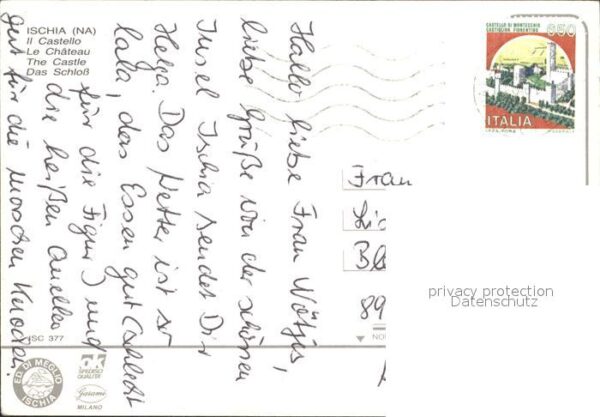 ISCHIA (NA)
Il Castello
Le Château
The Castle
Das Schloß
CASTELLO DI MONTECCHIO
CASTIGLION FIORENTINO
650
ITALIA
Hallo liebe Frau
liebe Grüße von der schönen
Insel Ischia sendet Dir
Helga. Das Wetter ist so
lala, das Essen gut (schlecht
für die Figur) und
die heißen Quellen
gut für die morschen Knochen.
Frau
89
privacy protection
Datenschutz
ISC 377
ED. DI MEGLIO
ISCHIA
Garami
MILANO